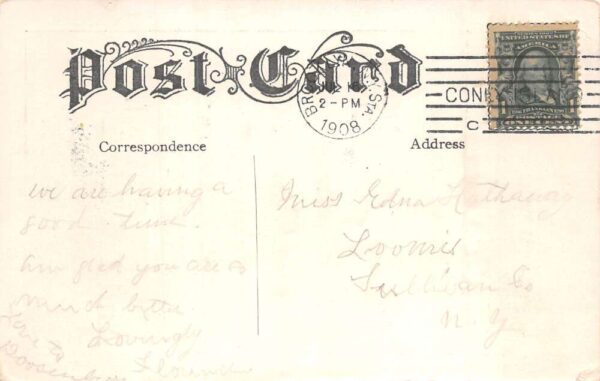 Post Card
JUL
2-PM
1908
STA
CONEY
UNITED STATES OF
AMERICA
POSTAGE
Correspondence
Address
we are having a
good time.
Am glad you are so
much better
Lovingly
Love to
Miss Edna Hathaway
Loomis
Sullivan Co
N.Y.